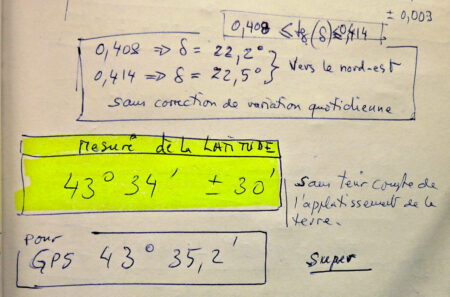 ± 0,003
0,408 ≤ tg(δ) ≤ 0,414
0,408 => δ = 22,2°
0,414 => δ = 22,5°
} Vers le nord-est
sans correction de variation quotidienne
Mesure de la LATITUDE
43° 34' ± 30'
sans tenir compte de
l'applatissement de la
terre.
pour
GPS 43° 35,2'
Super